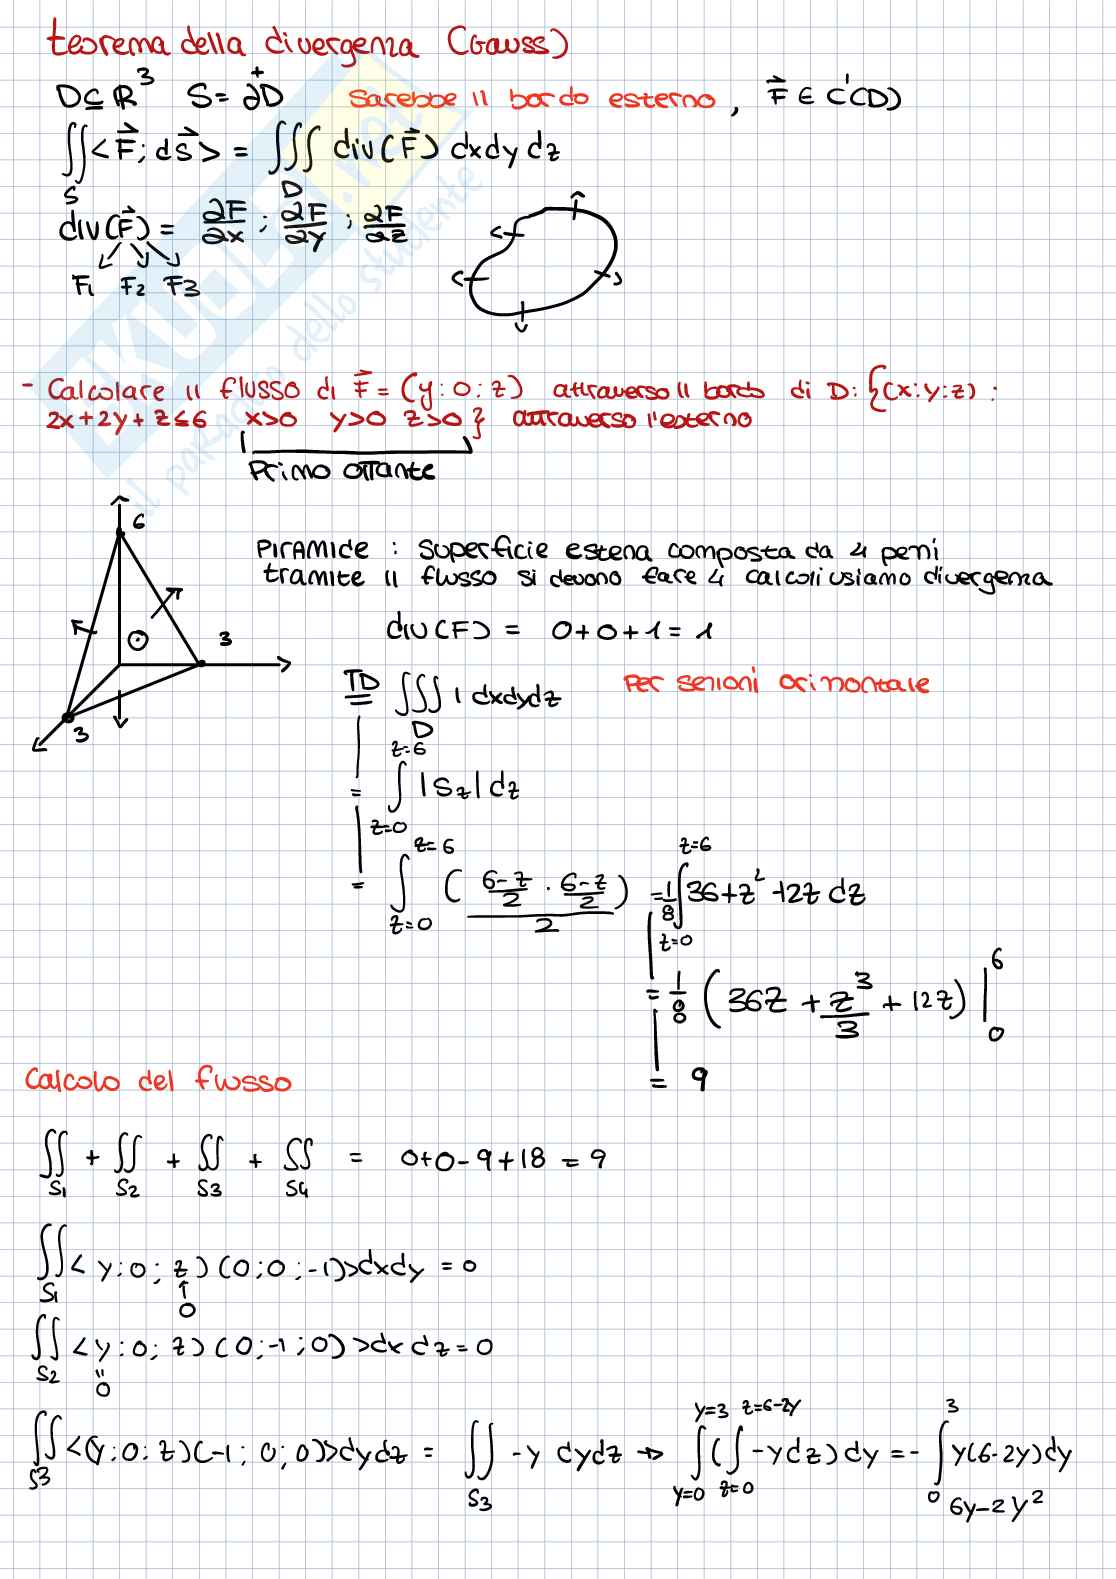 teorema della divergenza (Gauss)
D⊆R³ S=∂⁺D Sarebbe il bordo esterno, F⃗ ∈ C¹(D)
∬_S <F⃗; dS⃗> = ∭_D div(F⃗) dxdydz
div(F⃗) = ∂F/∂x ; ∂F/∂y ; ∂F/∂z
F1 F2 F3
- Calcolare il flusso di F⃗ = (y; 0; z) attraverso il bordo di D: {(x;y;z) :
2x+2y+z≤6 x>0 y>0 z>0 } attraverso l'esterno
Primo ottante
6
PIRAMIDE : superficie estena composta da 4 pezzi
tramite il flusso si devono fare 4 calcoli usiamo divergenza
3
3
div(F) = 0+0+1 = 1
TD = ∭_D 1 dxdydz Per sezioni orizzontale
= ∫_{z=0}^{z=6} |Sz| dz
= ∫_{z=0}^{z=6} ( (6-z)/2 · (6-z)/2 )/2 = 1/8 ∫_{z=0}^{z=6} 36+z²-12z dz
= 1/8 ( 36z + z³/3 + 12z ) |_0^6
= 9
Calcolo del flusso
∬_S1 + ∬_S2 + ∬_S3 + ∬_S4 = 0+0-9+18 = 9
∬_S1 < y; 0; z) (0; 0; -1)>dxdy = 0
↑
0
∬_S2 < y; 0; z) (0; -1; 0) >dx dz = 0
"
0
∬_S3 <(y; 0; z)(-1; 0; 0)>dydz = ∬_S3 -y dydz → ∫_{y=0}^{y=3} (∫_{z=0}^{z=6-2y} -y dz) dy = - ∫_0^3 y(6-2y)dy
6y-2y²
il paradiso dello studente